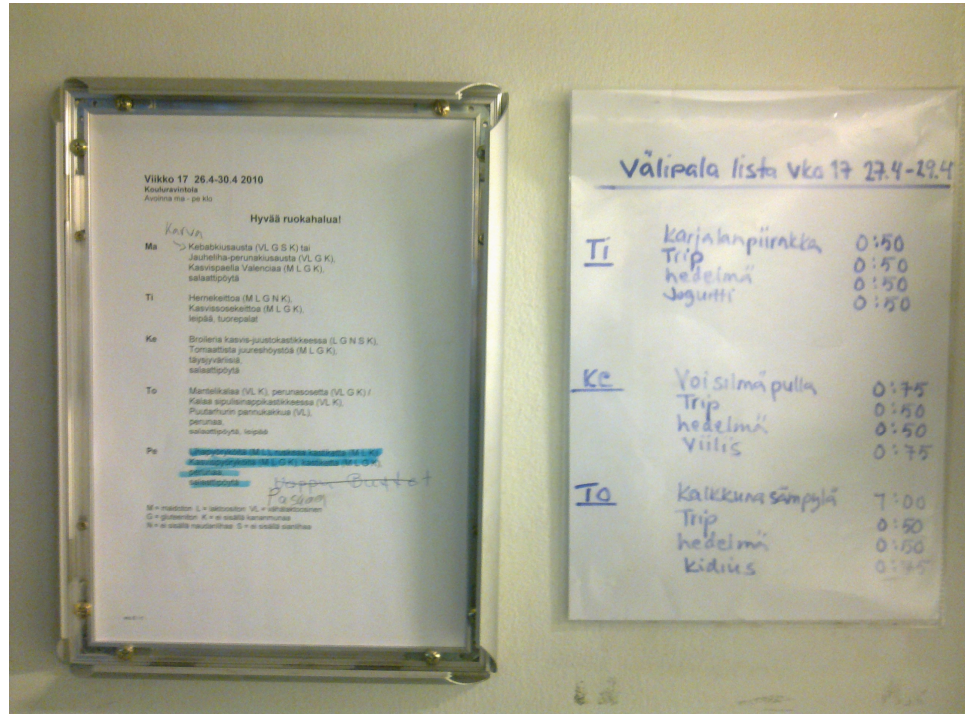 Viikko 17 26.4-30.4 2010
Kouluravintola
Avoinna ma - pe klo
Hyvää ruokahalua!
Ma Kebabkiusausta (VL G S K) tai
Jauheliha-perunakiusausta (VL G K),
Kasvispaella Valenciaa (M L G K),
salaattipöytä
Ti Hernekeittoa (M L G N K),
Kasvissosekeittoa (M L G K),
leipää, tuorepalat
Ke Broileria kasvis-juustokastikkeessa (L G N S K),
Tomaattista juureshöystöä (M L G K),
täysjyväriisiä,
salaattipöytä
To Mantelikalaa (VL K), perunasosetta (VL G K) /
Kalaa sipulisinappikastikkeessa (VL K),
Puutarhurin pannukakkua (VL),
perunaa,
salaattipöytä, leipää
Pe Lihapyöryköitä (M L), ruskeaa kastiketta (M L K)
Kasvispyöryköitä (M L G K), kastiketta (M L G K),
perunaa,
salaattipöytä
Vappu Buffet
M = maidoton L = laktoositon VL = vähälaktoosinen
G = gluteeniton K = ei sisällä kananmunaa
N = ei sisällä naudanlihaa S = ei sisällä sianlihaa
Välipala lista vko 17 27.4-29.4
Ti Karjalanpiirakka 0:50
Trip 0:50
hedelmä 0:50
Jogurtti 0:50
Ke Voisilmäpulla 0:75
Trip 0:50
hedelmä 0:50
Viilis 0:75
To Kalkkunasämpylä 1:00
Trip 0:50
hedelmä 0:50
kidius